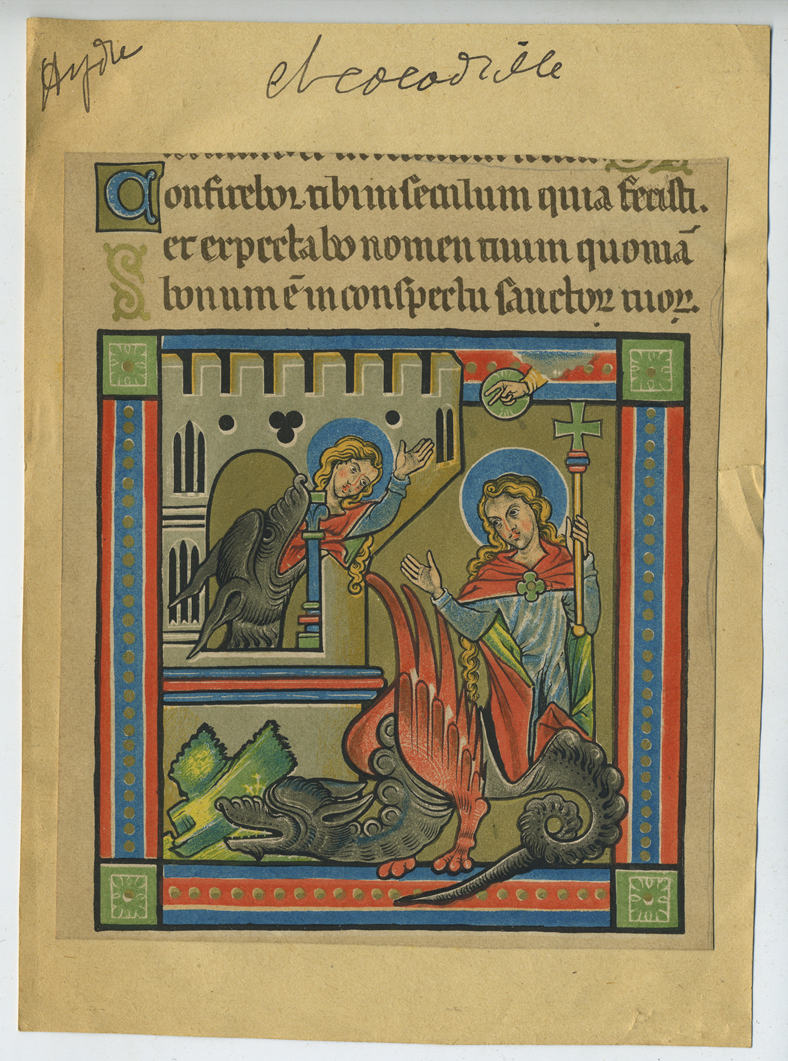 Hydre
et cocodrille
Confitebor tibi in seculum quia fecisti.
et expectabo nomen tuum quoniā
S
bonum ē in conspectu sanctoꝝ tuoꝝ.